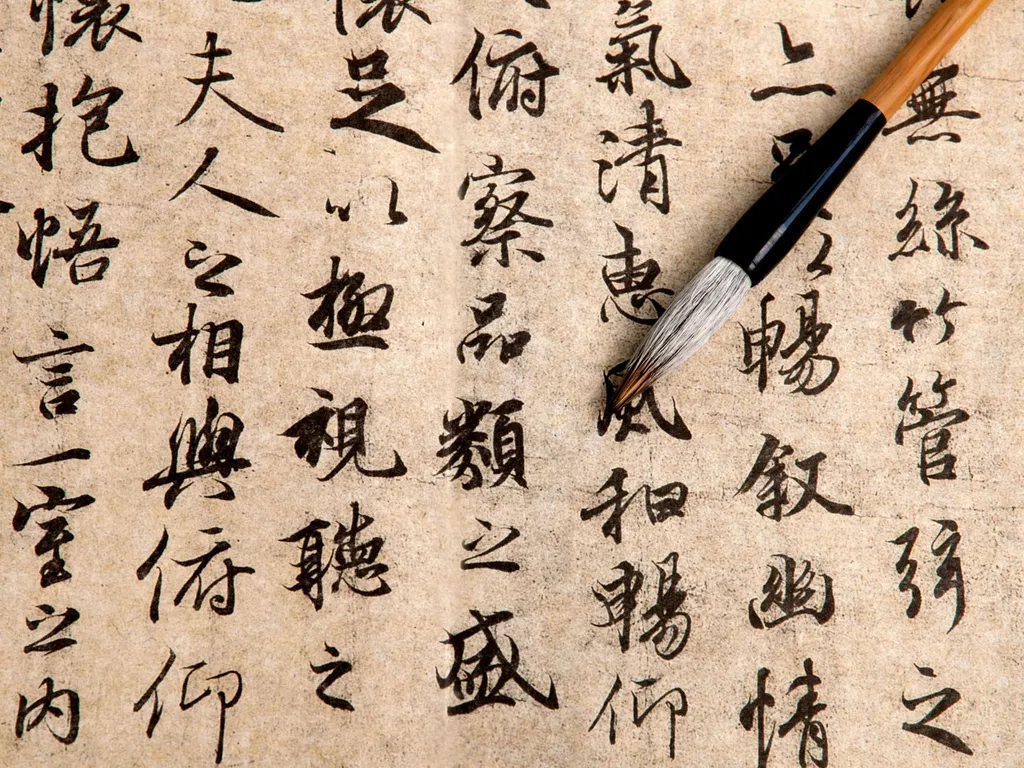 無絲竹管弦之
亦足以暢叙幽情
氣清惠風和暢仰
俯察品類之盛
懷足以極視聽之
夫人之相與俯仰
懷抱悟言一室之內